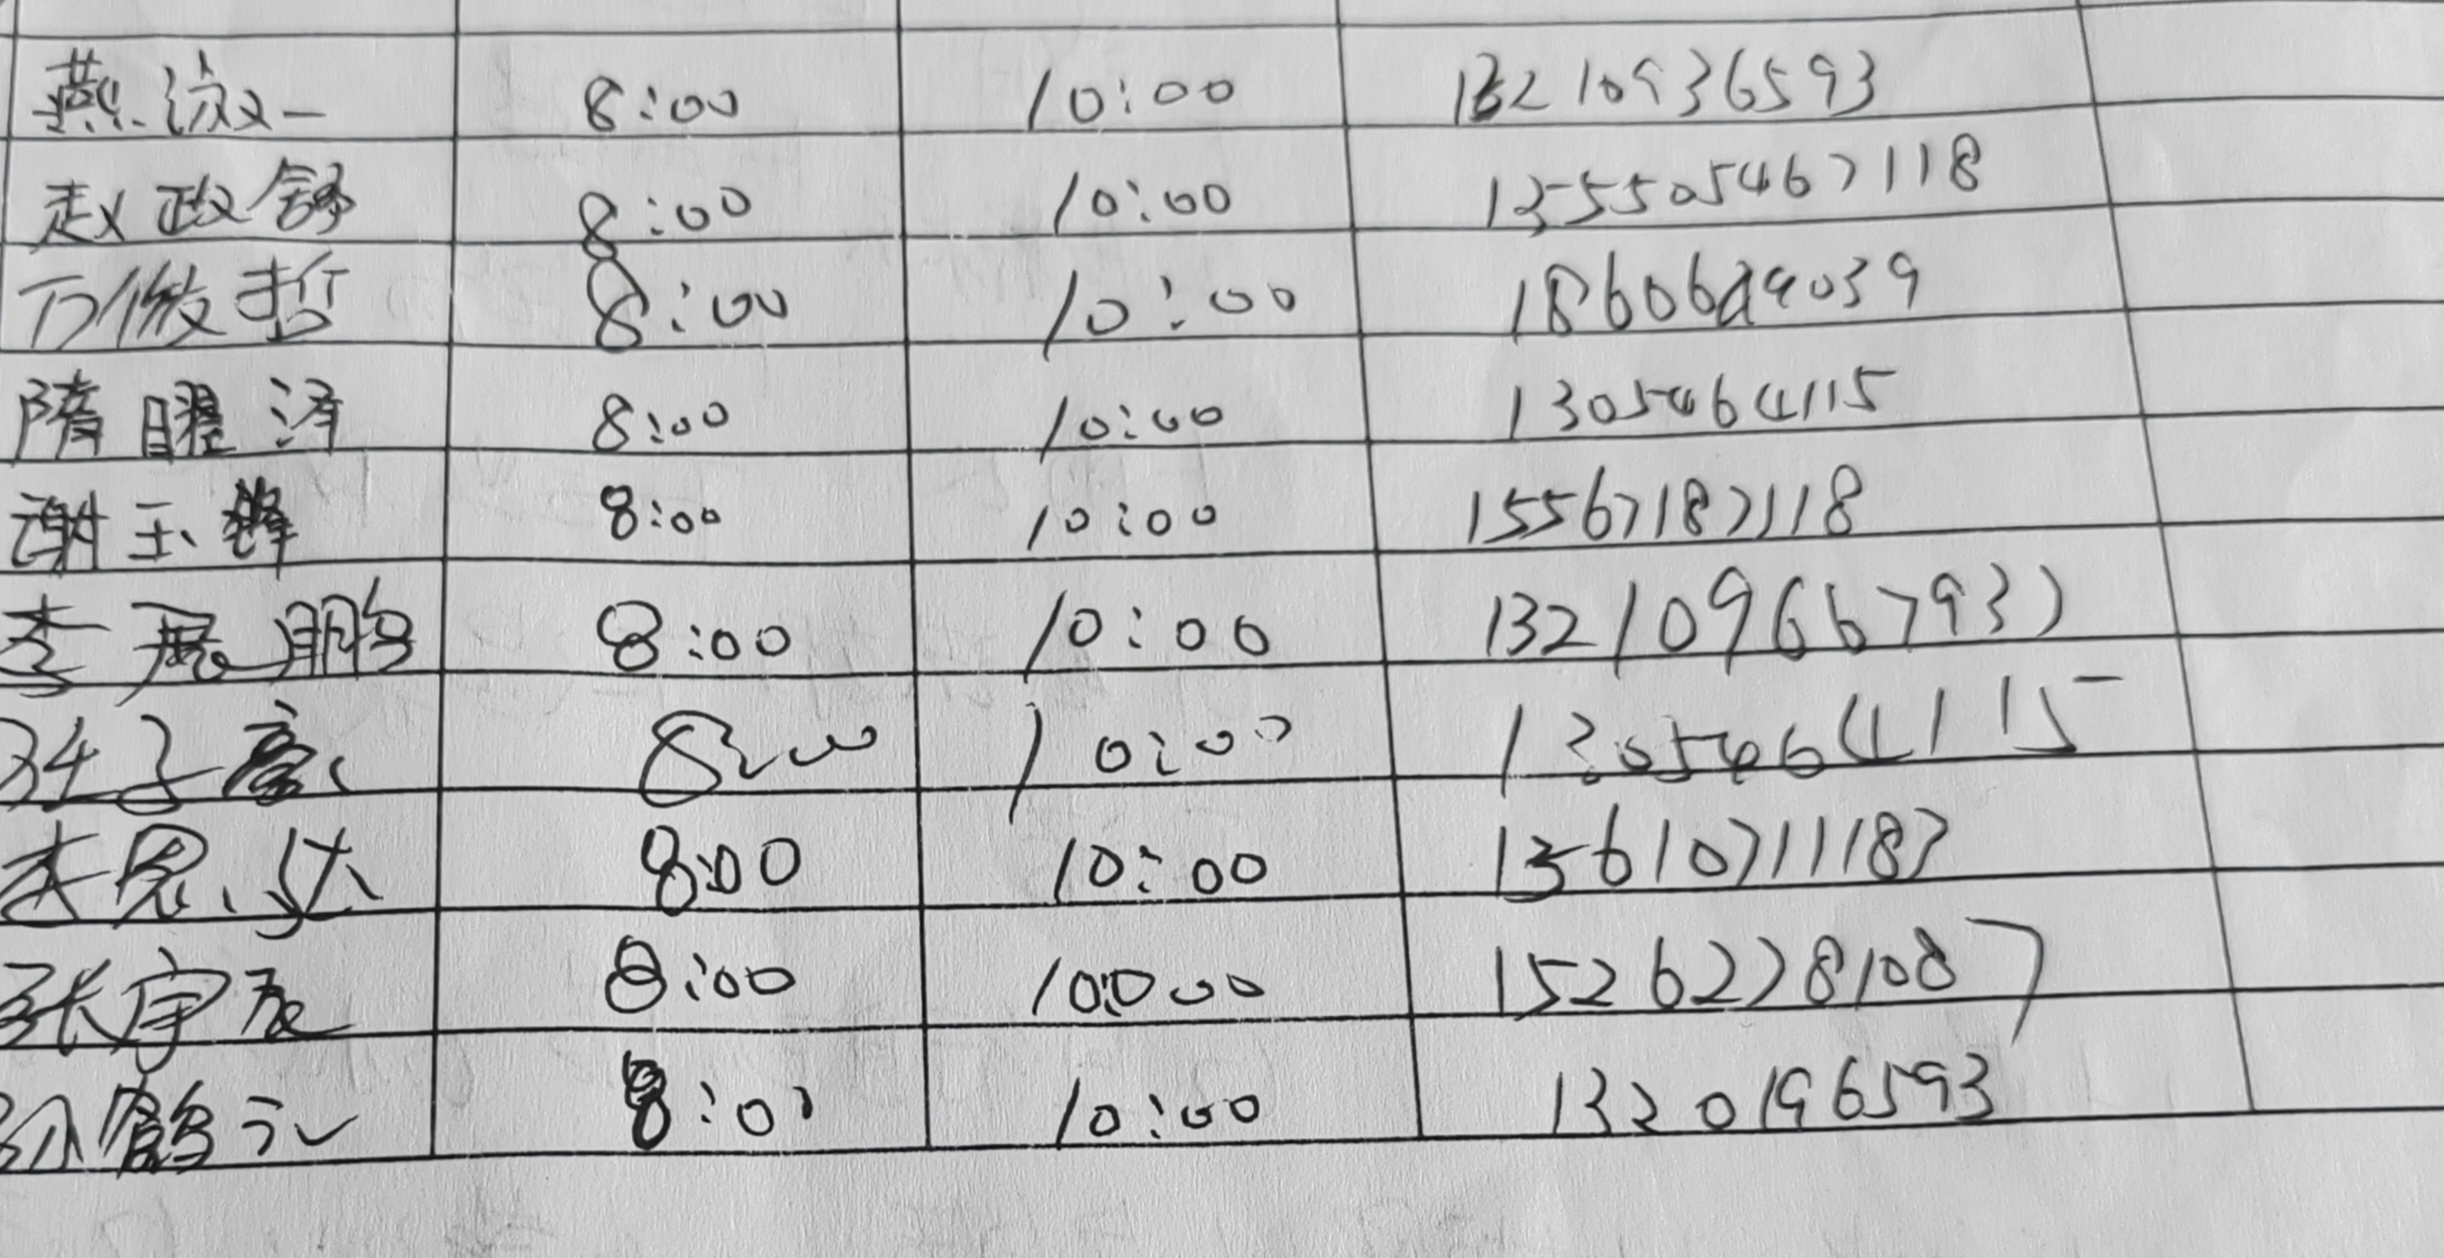 燕泓一 8:00 10:00 13210936593
赵政舒 8:00 10:00 135505467118
万俊哲 8:00 10:00 18606
隋曜泽 8:00 10:00 1305464115
谢玉锋 8:00 10:00 15567187118
李展鹏 8:00 10:00 132109667937
8:00 10:00 1305464115
李恩达 8:00 10:00 13610711187
张宇 8:00 10:00 152622781087
孙鹤元 8:00 10:00 1320196593